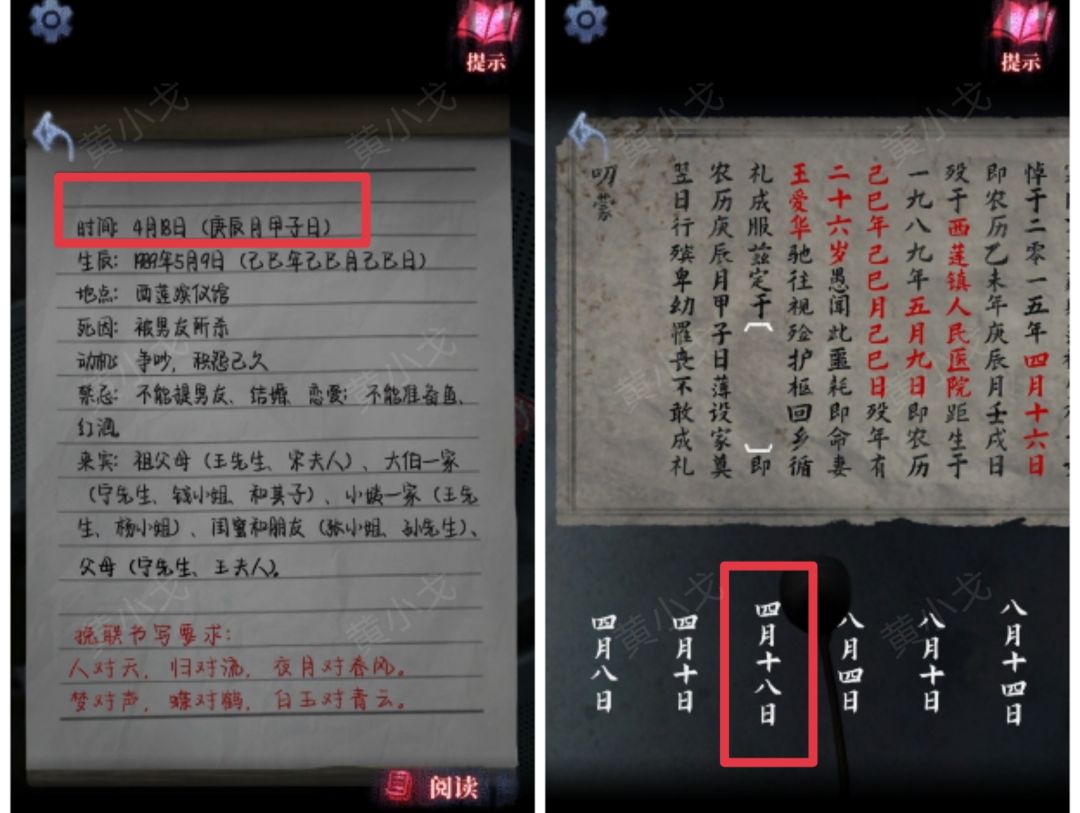 提示
时间: 4月18日（庚辰月甲子日）
生辰: 1989年5月9日（己巳年己巳月己巳日）
地点: 西莲殡仪馆
死因: 被男友所杀
动机: 争吵，积怨已久
禁忌: 不能提男友、结婚、恋爱; 不能准备鱼、
红酒
来宾: 祖父母（王先生、宋夫人）、大伯一家
（宁先生、钱小姐、和其子）、小姨一家（王先
生、杨小姐）、闺蜜和朋友（张小姐、孙先生）、
父母（宁先生、王夫人）。
挽联书写要求:
人对天，归对流，夜月对春风。
梦对声，蝶对鹤，白玉对青云。
阅读
提示
悼于二零一五年四月十六日
即农历乙未年庚辰月壬戌日
殁于西莲镇人民医院距生于
一九八九年五月九日即农历
己巳年己巳月己巳日殁年有
二十六岁愚闻此噩耗即命妻
王爱华驰往视殓护柩回乡循
礼成服兹定于 即
农历庚辰月甲子日薄设家奠
翌日行殡卑幼罹丧不敢成礼
叨蒙
四月八日
四月十日
四月十八日
八月四日
八月十日
八月十四日
黄小戈
黄小戈
黄小戈
黄小戈
黄小戈
黄小戈